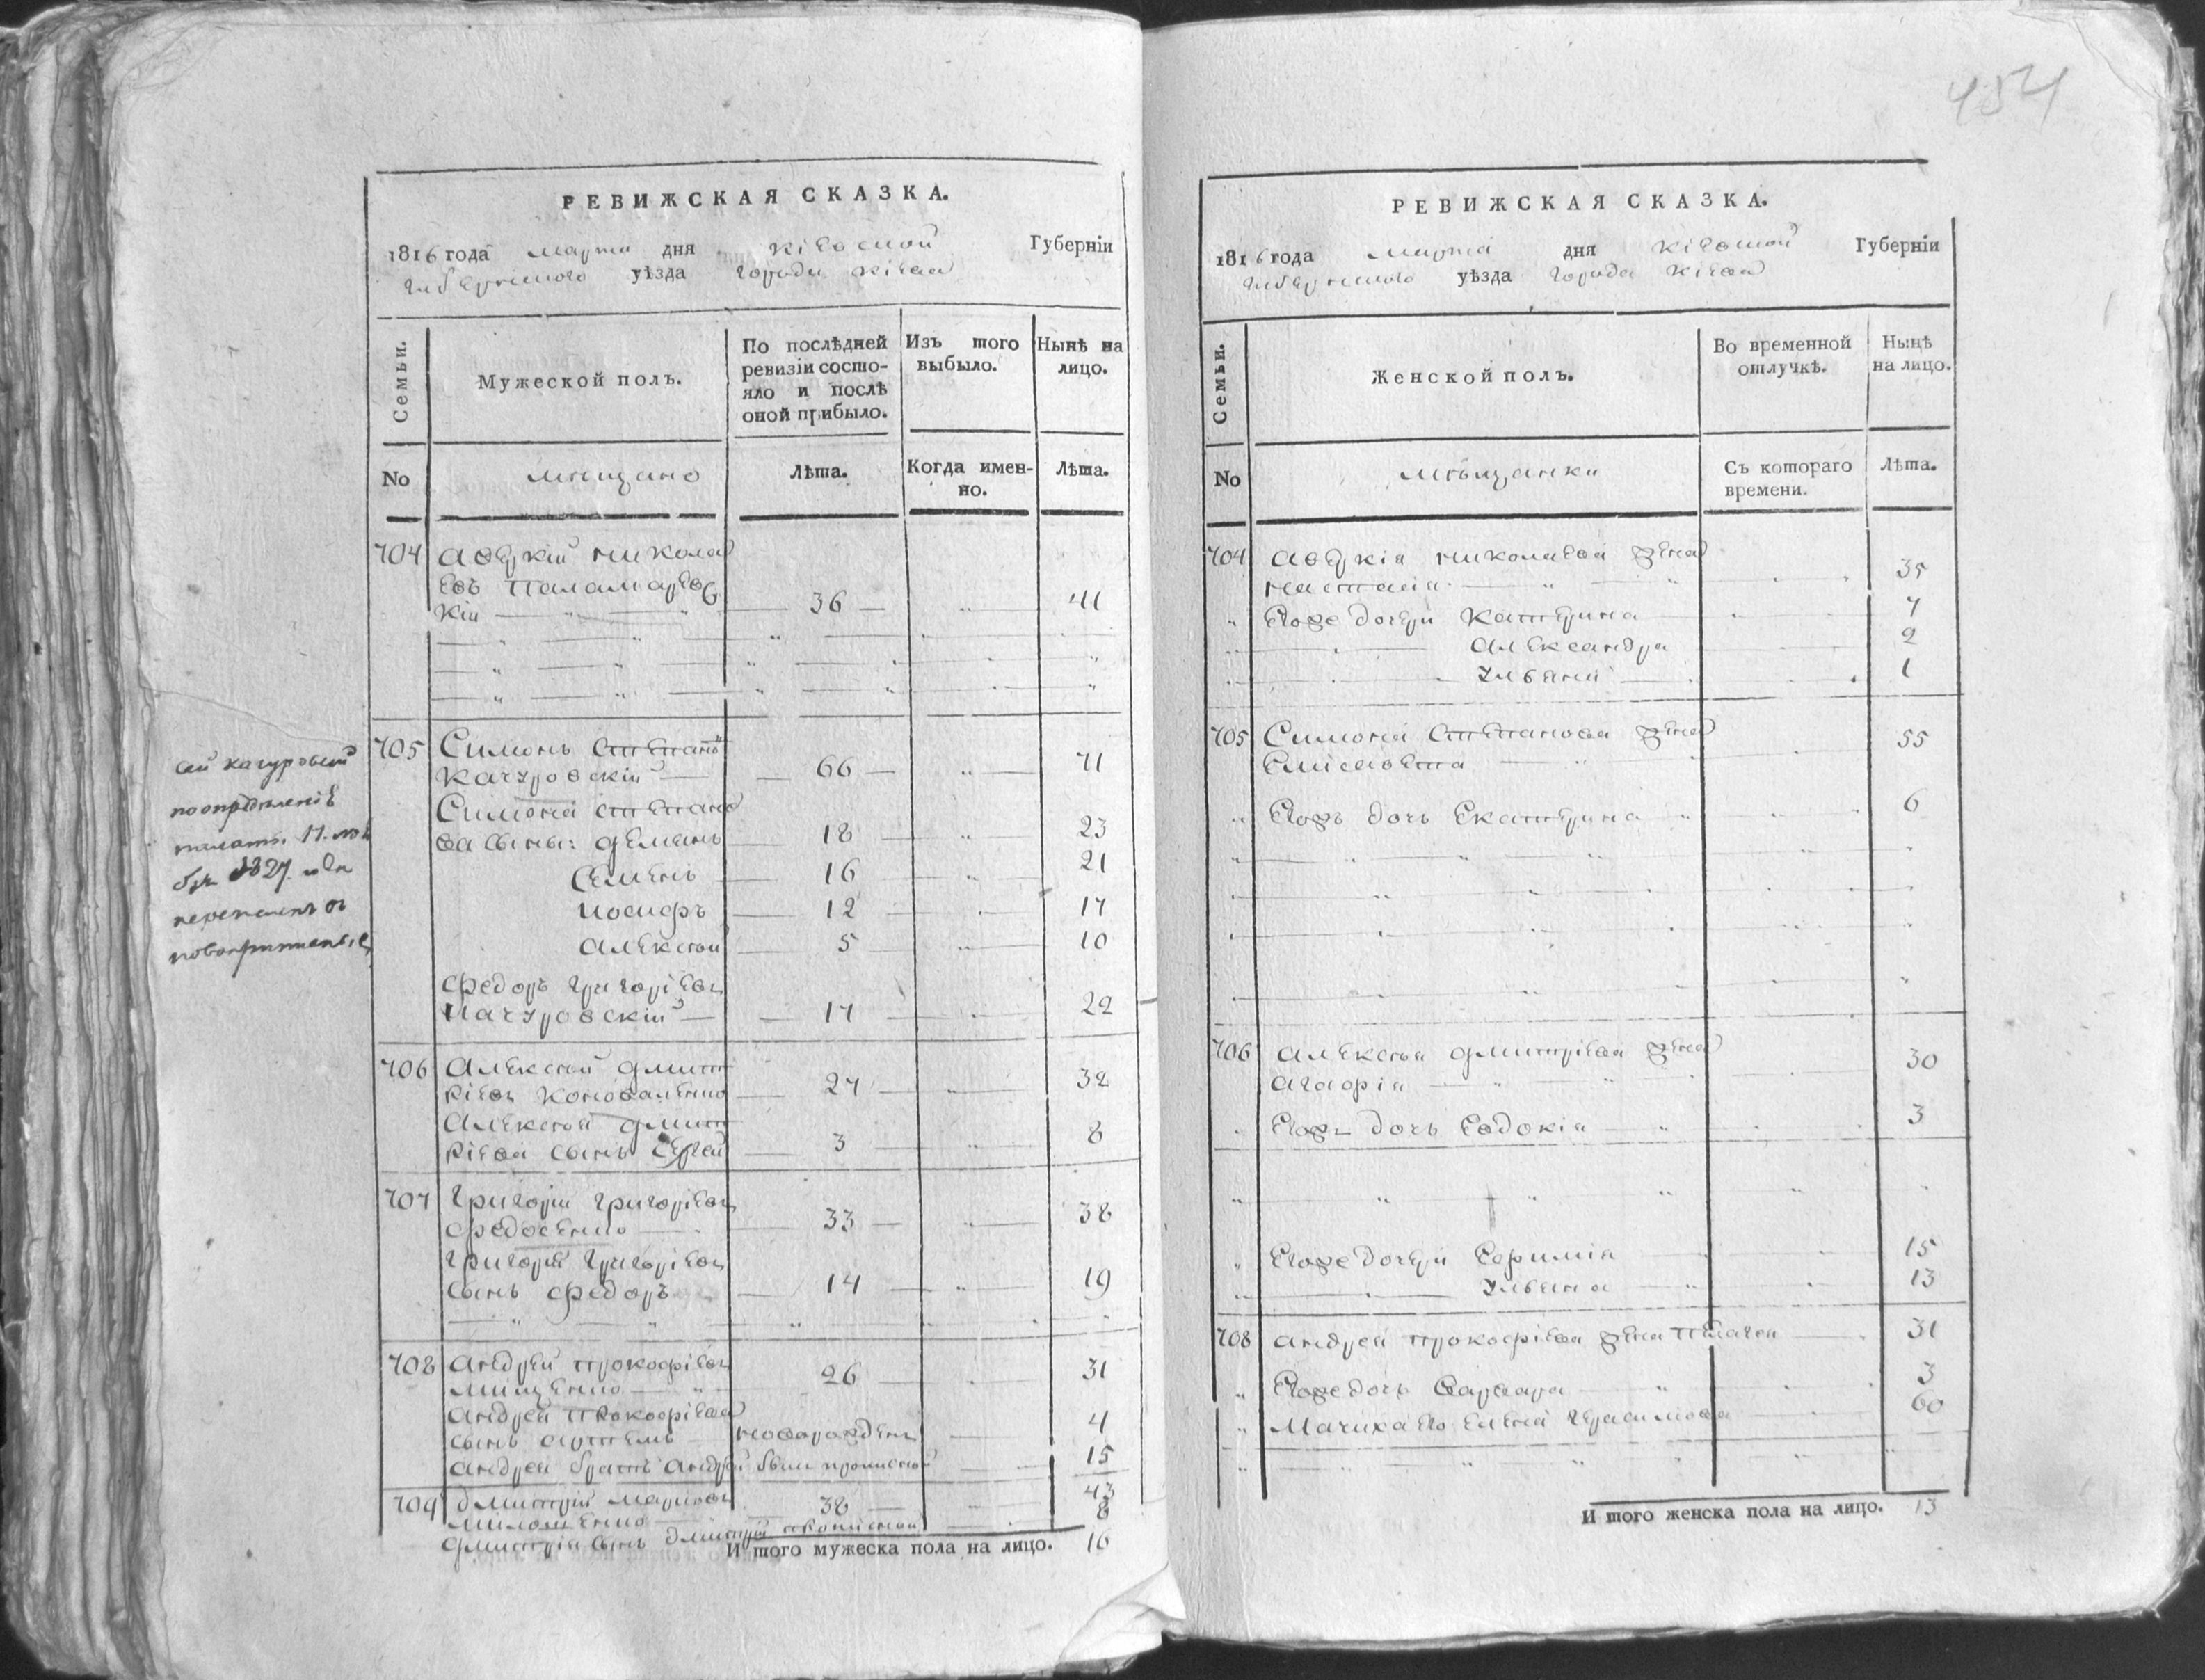 454
РЕВИЖСКАЯ СКАЗКА.
1816 года марта дня Кіевской Губерніи
Губернского уѣзда города Кіева
Семьи.
Мужеской полъ.
По послѣдней ревизіи состо-
яло и послѣ оной прибыло.
Изъ того выбыло.
Нынѣ на лицо.
No
мещане
Лѣта.
Когда имен-
но.
Лѣта.
704 Аверкій Никола
евъ Паламаревс
кій 36 41
705 Симонъ Степанъ
Качуровскій 66 71
Симона Степано
ва сыны: Демянъ 18 23
Семенъ 16 21
Иосифъ 12 17
Алексей 5 10
Федоръ Григоріевъ
Качуровскій 17 22
706 Алексей Дмит
ріевъ Коноваленко 27 32
Алексея Дмит
ріева сынъ Сергей 3 8
707 Григорій Григоріевъ
Федосенко 33 38
Григорія Григоріева
сынъ Федоръ 14 19
708 Андрей Прокофіевъ
Мищенко 26 31
Андрея Прокофіева
сынъ Артемъ новорожденъ 4
Андрея братъ Андрей былъ прописной 15
709 Дмитрій Марковъ 43
Милошенко 38 8
Дмитрія сынъ Дмитрій прописной
И того мужеска пола на лицо. 16
сей Качуровскій
по определеніе
палаты 11.
1827 года
РЕВИЖСКАЯ СКАЗКА.
1816 года марта дня Кіевской Губерніи
Губернского уѣзда города Кіева
Семьи.
Женской полъ.
Во временной отлучкѣ.
Нынѣ на лицо.
No
мѣщанки
Съ котораго времени.
Лѣта.
704 Аверкія Николаева жена
Настасія 35
Егоже дочери Катерина 7
Александра 2
Ульяна 1
705 Симона Степанова жена 55
Елисавета
Егожъ дочь Екатерина 6
706 Алексея Дмитріева жена 30
Агафія
Егожъ дочь Евдокія 3
Егоже дочери Ефимія 15
Ульяна 13
708 Андрея Прокофіева жена Пелагея 31
Егоже дочь Варвара 3
Мачиха его Елена Герасимова 60
И того женска пола на лицо. 13